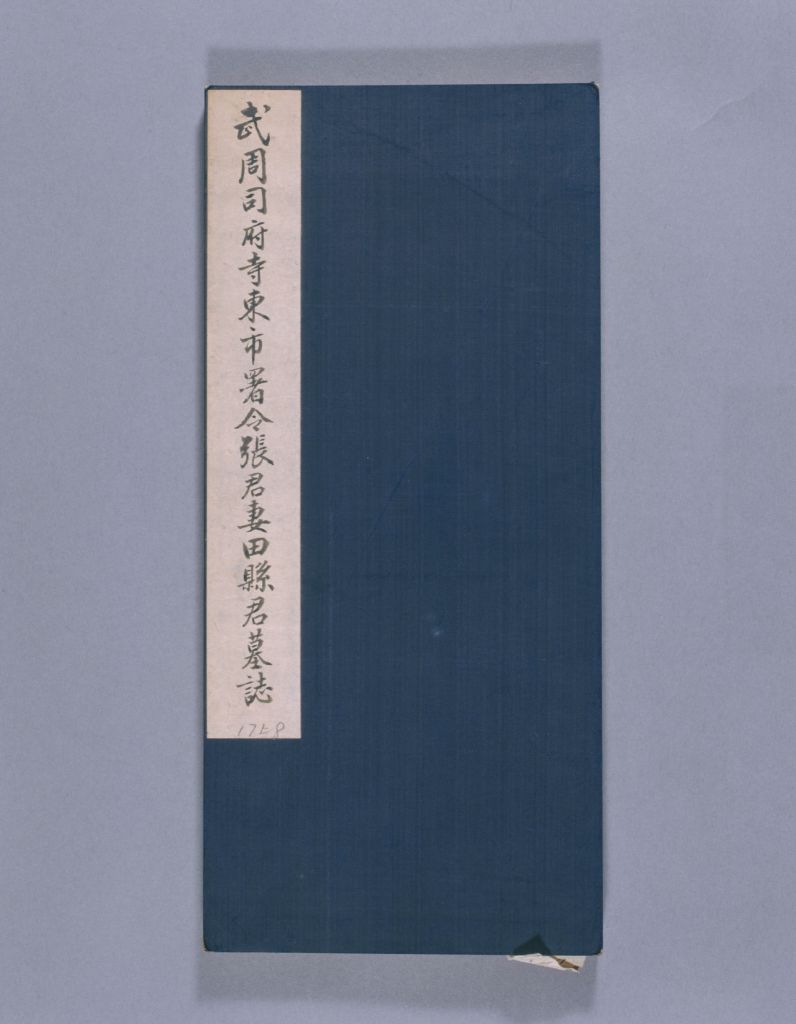 武周司府寺東市署令張君妻田縣君墓誌
1758